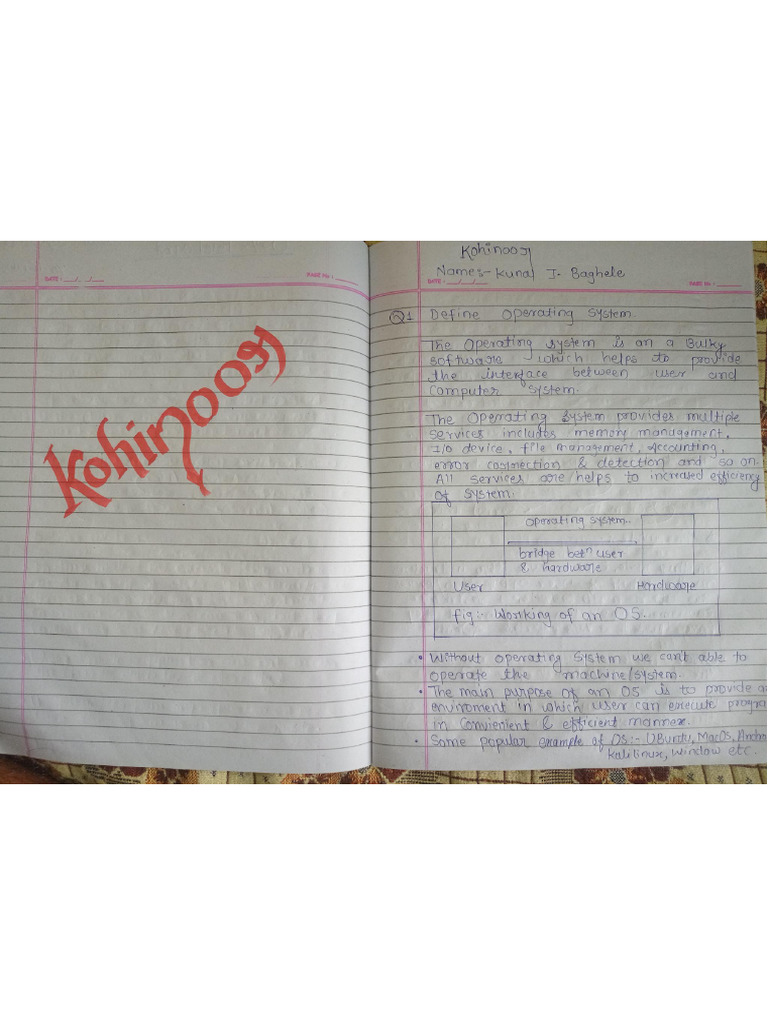 Kohinoor
DATE : __/__/__
PAGE No : ____
Kohinoor
Name:- Kunal I. Baghele
DATE : __/__/__
PAGE No. : ____
Q1 Define Operating System.
The Operating system is an a Bulky
software which helps to provide
the interface between user and
Computer System.
The Operating System provides multiple
services includes memory management,
I/O device, file management, Accounting,
error connection & detection and so on.
All services are helps to increased efficiency
of system.
Operating system..
bridge betn user
& hardware
User
Hardware
fig:- Working of an OS.
• Without operating System we can't able to
operate the machine/system.
• The main purpose of an OS is to provide an
enviroment in which user can execute progra
in Convienient & efficient manner.
• Some popular example of OS:- UBuntu, MacOS, Andro
kalilinux, window etc.